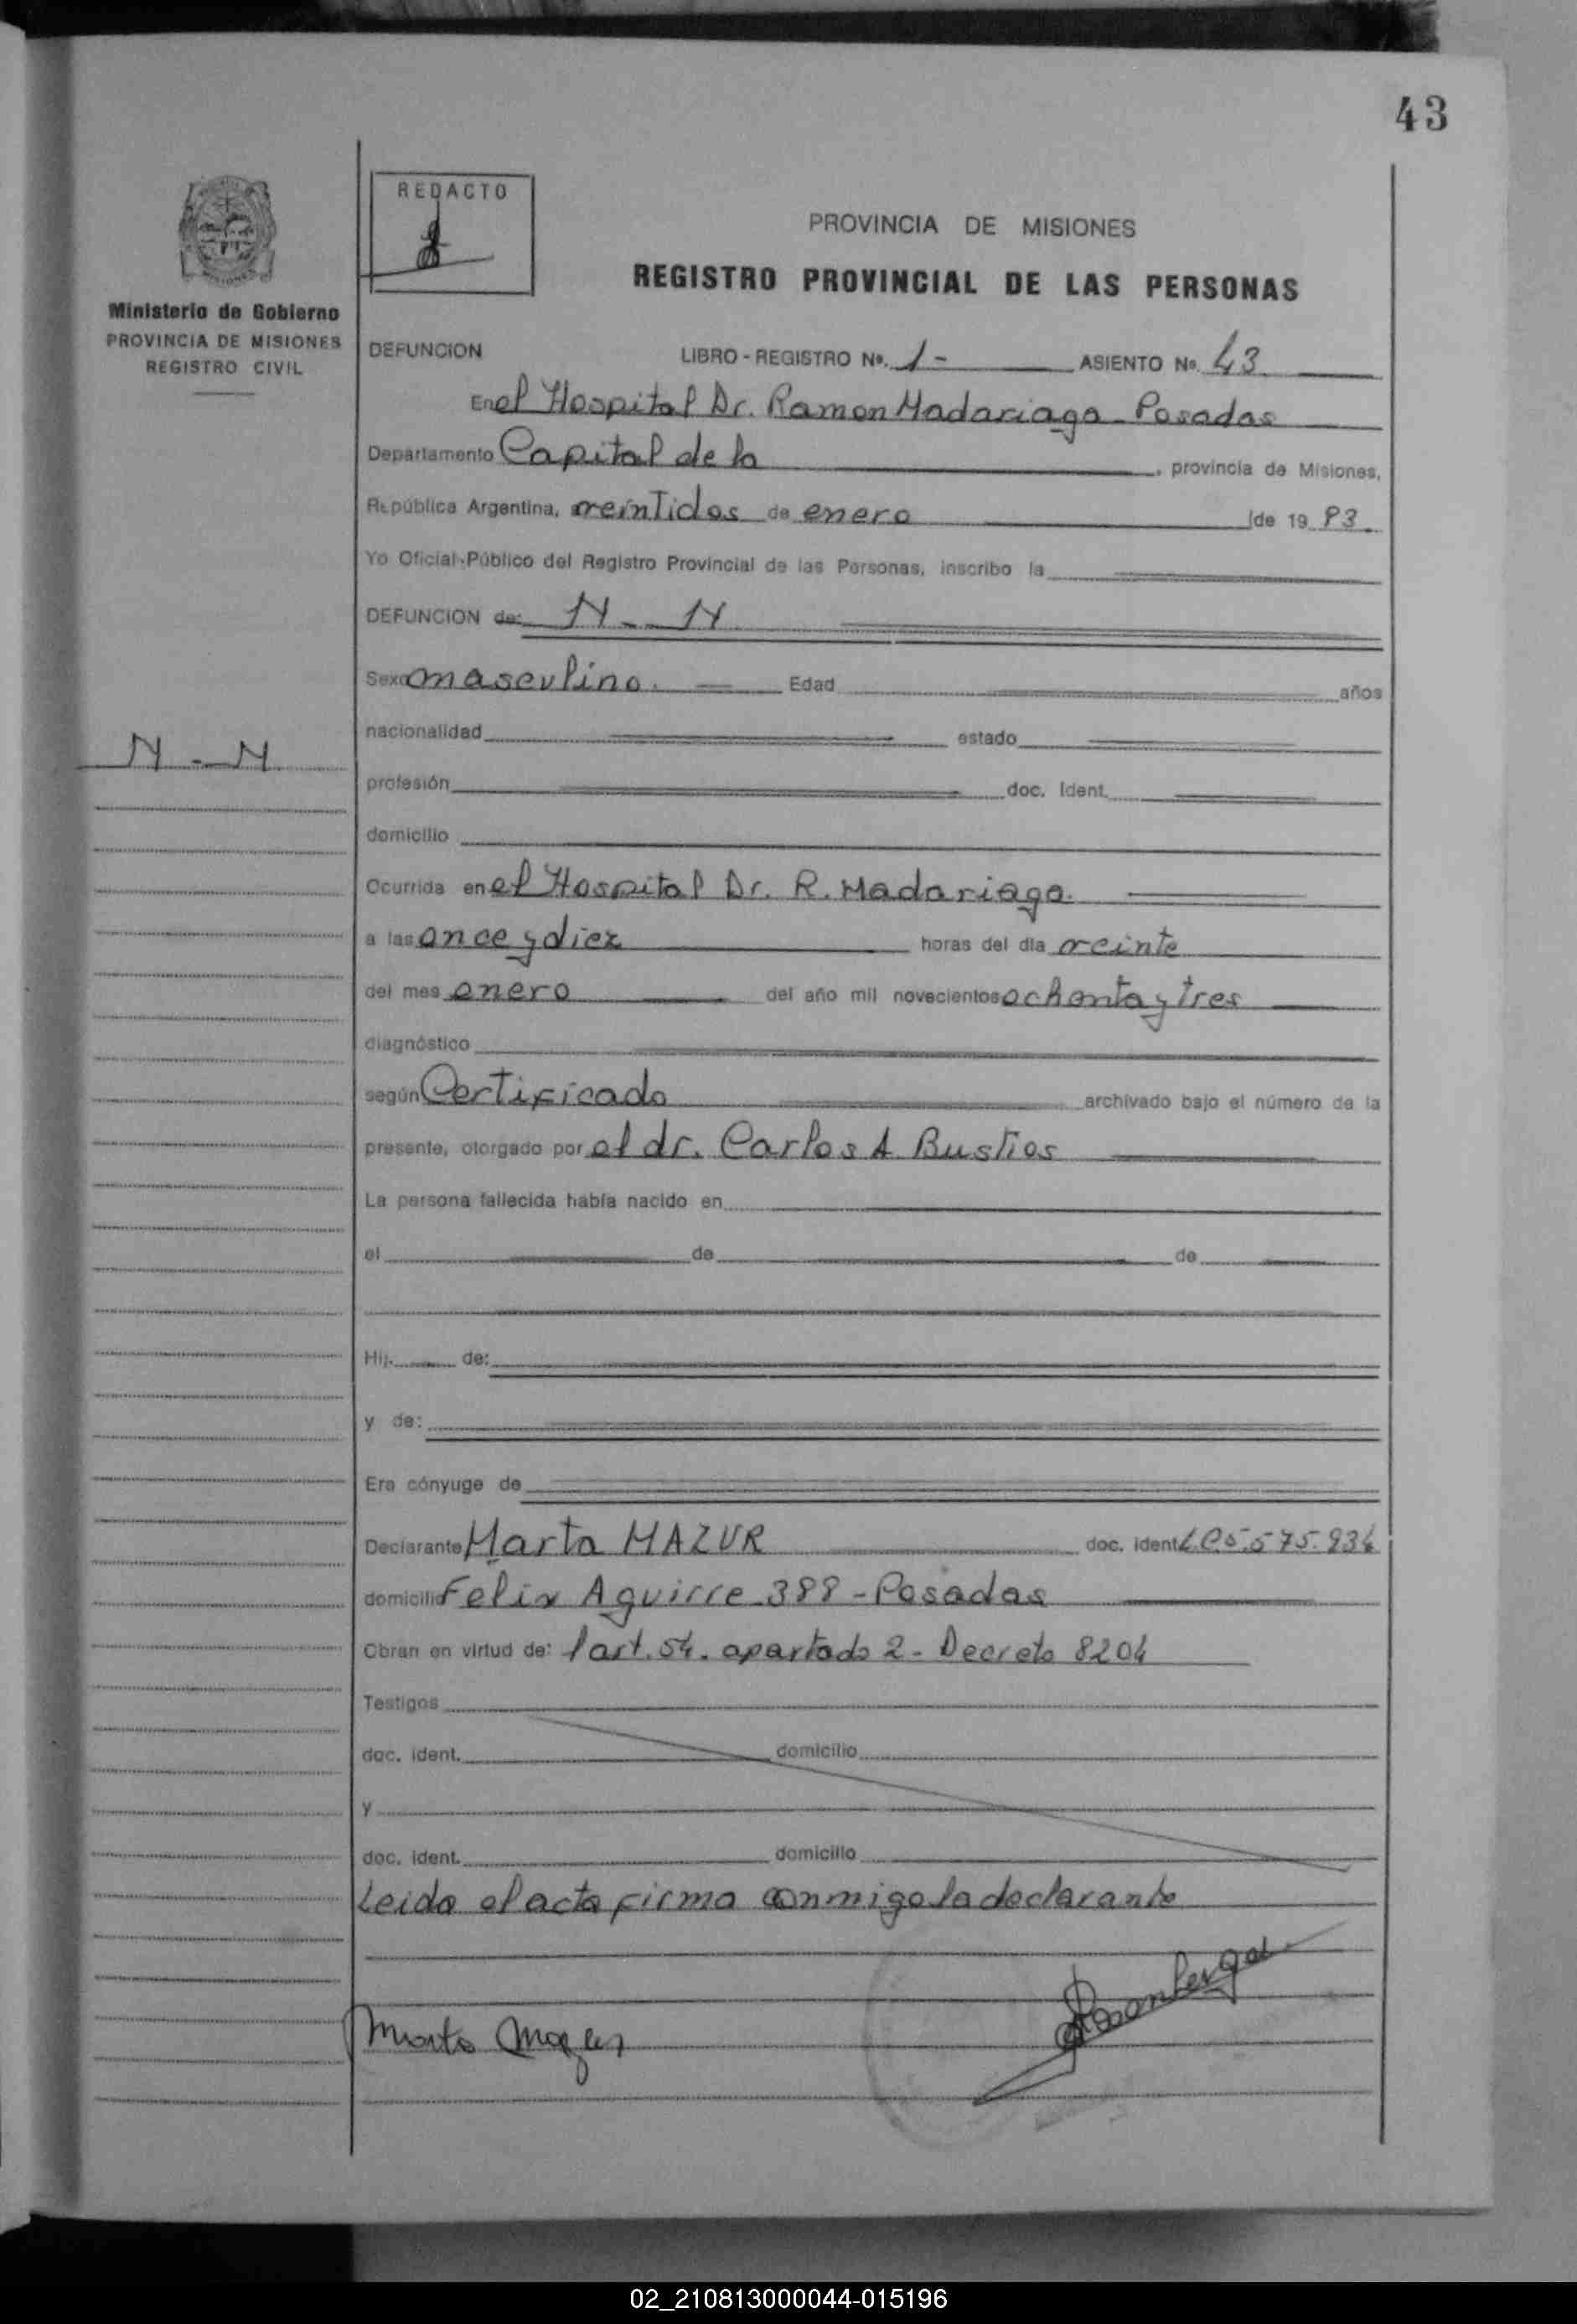 43
REDACTO
PROVINCIA DE MISIONES
REGISTRO PROVINCIAL DE LAS PERSONAS
Ministerio de Gobierno
PROVINCIA DE MISIONES
REGISTRO CIVIL
DEFUNCION LIBRO - REGISTRO Nº. 1- ASIENTO Nº. 43
En el Hospital Dr. Ramon Madariaga - Posadas
Departamento Capital de la, provincia de Misiones,
República Argentina, veintidos de enero de 19 83
Yo Oficial Público del Registro Provincial de las Personas, inscribo la
DEFUNCION de: N - N
Sexo masculino. Edad años
nacionalidad estado
N - N
profesión doc. Ident.
domicilio
Ocurrida en el Hospital Dr. R. Madariaga.
a las once y diez horas del día veinte
del mes enero del año mil novecientos ochenta y tres
diagnóstico
según Certificado archivado bajo el número de la
presente, otorgado por el dr. Carlos A. Bustios
La persona fallecida había nacido en
el de de
Hij. de:
y de:
Era cónyuge de
Declarante Marta MAZUR doc. ident.
domicilio Felix Aguirre 388 - Posadas
Obran en virtud de: l art. 54. apartado 2 - Decreto 8204
Testigos
doc. ident. domicilio
y
doc. ident. domicilio
Leida el acta firma conmigo la declarante
Marta Mazur
02_210813000044-015196